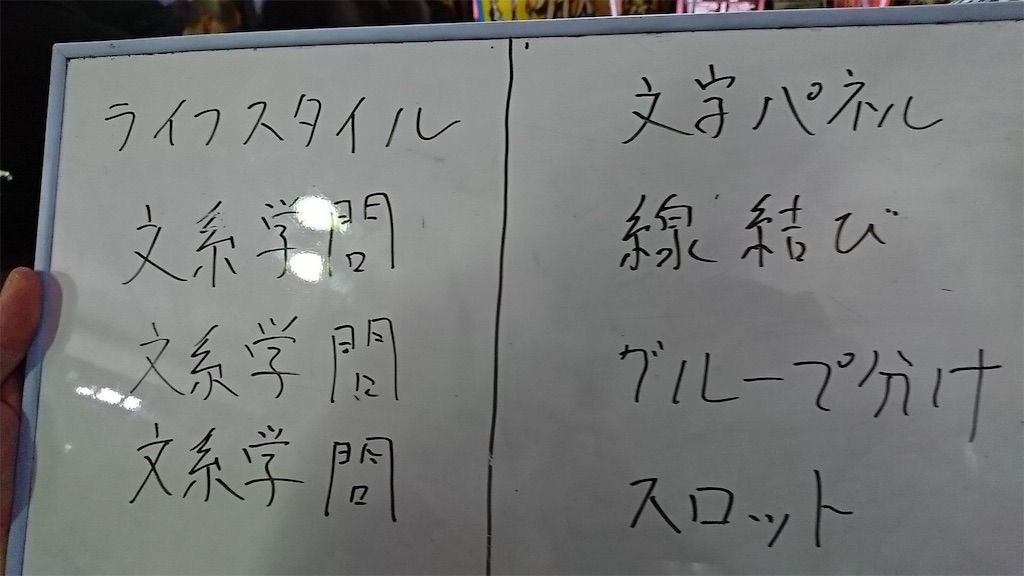 ライフスタイル
文系学問
文系学問
文系学問
文字パネル
線結び
グループ分け
スロット